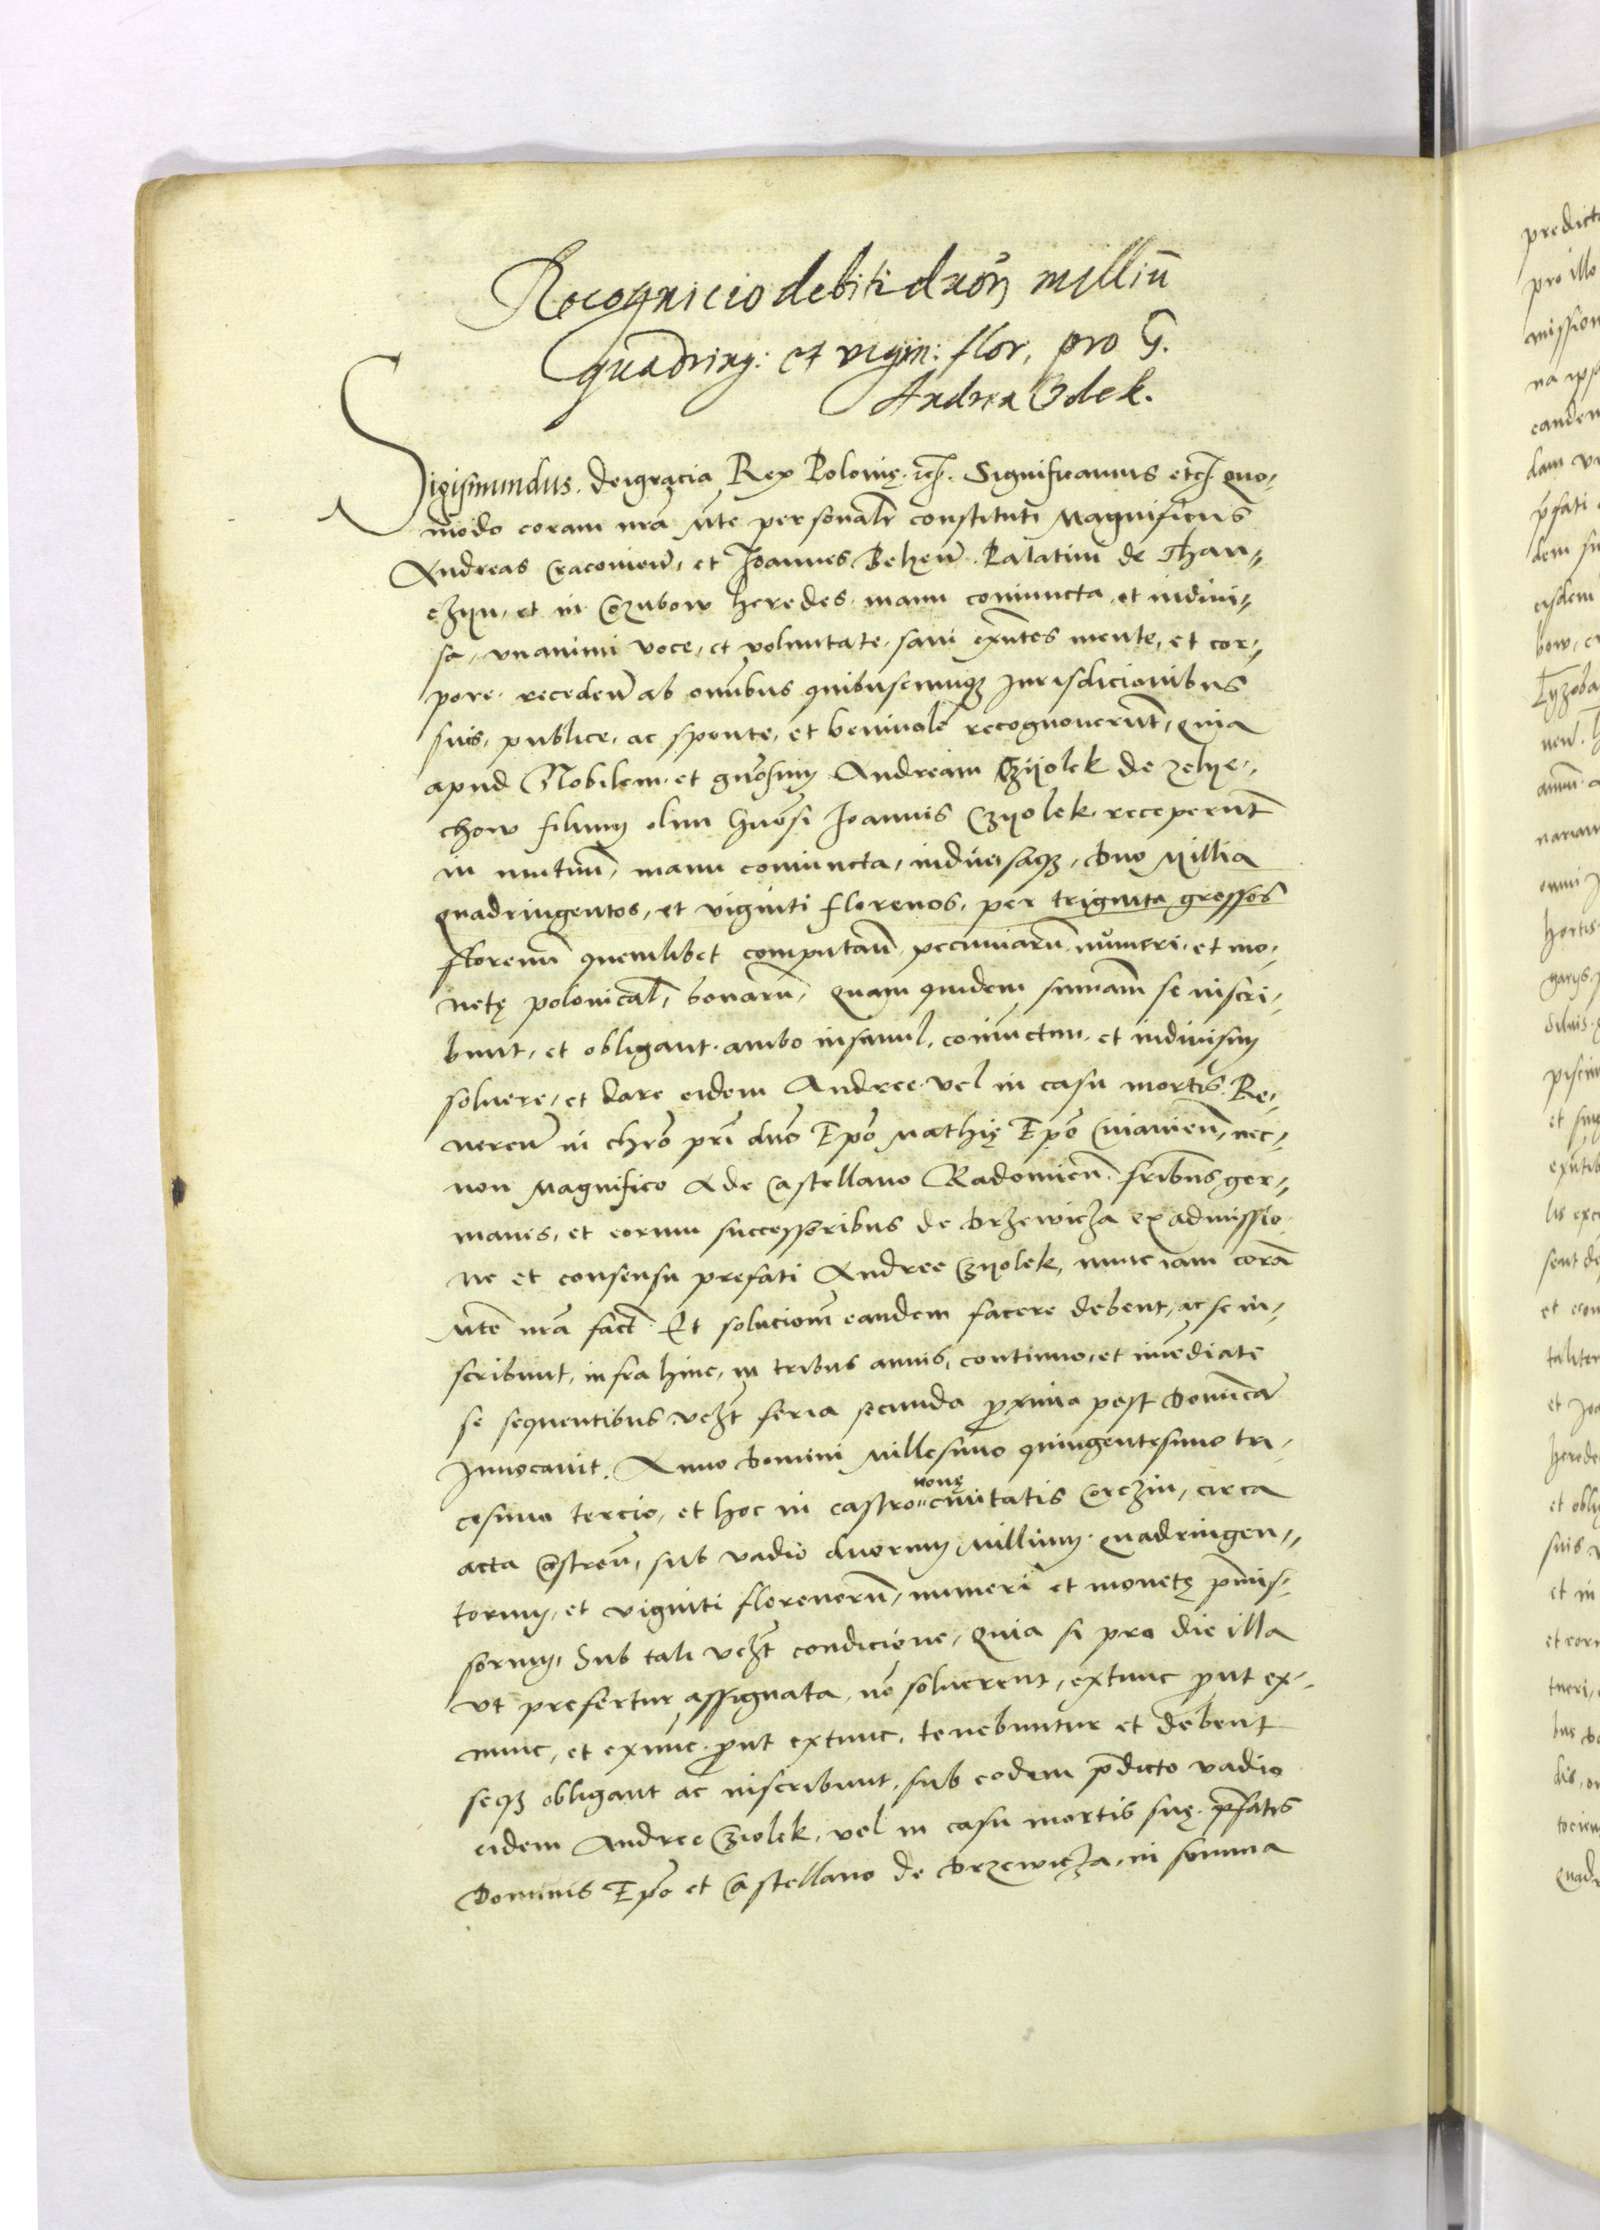 Recognicio debiti duoꝝ milliū
quadring: et vigin: flor, pro G.
Andrea Czolek.
Sigismundus. Dei gracia Rex Polonię. ꝛcꝭ. Significamus etcꝭ. quo-
modo coram nrā Mte personalr̄ constituti Magnificus
Andreas Cracovien̄, et Joannes Belzen̄. Palatini de Than-
czyn, et in Czubow heredes. manu coniuncta et indivi-
sa, vnanimi voce, et voluntate, sani exn̄tes mente, et cor-
pore. receden̄ ab omībus quibuscumqꝫ jurisdicionibus
suis, publice, ac sponte, et benivole recognoverūt, quia
apud Nobilem et gnōsum Andream Czyolek de zelye-
chow filium olim Gnōsi Joannis Czyolek. receperūt
in mutuū, manu coniuncta, indivisaqꝫ, duo Millia
quadringentos, et viginti florenos, per triginta grossos
florenū quemlibet computan̄ pecuniarū. numeri. et mo-
netę polonical̄, bonarū, quam quidem sum̄am se inscri-
bunt, et obligant. ambo insimul, coniūctim. et indivisim
solvere, et dare eidem Andree. vel in casu mortis. Re-
veren̄ in chrō prī dnō Epō Mathię Epō Cuiavien̄, nec-
non Magnifico Ade Castellano Radomien̄ frībus ger-
manis, et eorum successoribus de Drzewicza ex admissio-
ne et consensu prefati Andree Czyolek, nunc iam corā
Mte nrā fact̄. Et solucionē eandem facere debent, ac se in-
scribunt, infra hinc, in tribus annis, continuo, et im̄ediate
se sequentibus vcꝫt feria secunda ꝓxima post Dominicā
Invocavit. Anno domini Millesimo quingentesimo tri-
cesimo tercio, et hoc in castro novę civitatis Corczin, circa
acta Castren̄, sub vadio duorum Millium. quadringen-
torum, et viginti florenorū, numeri et monetę p̄mis-
sorum, Sub tali vcꝫt condicione, quia si pro die illa
vt prefertur assignata, nō solverent, extunc ꝓut ex-
nunc, et exnūc. ꝓut extunc, tenebuntur et debent
seqꝫ obligant ac inscribunt, sub eodem p̄dicto vadio
eidem Andree Cziolek, vel in casu mortis suę. p̄fatis
Dominis Epō et Castellano de Drzewicza, in summa